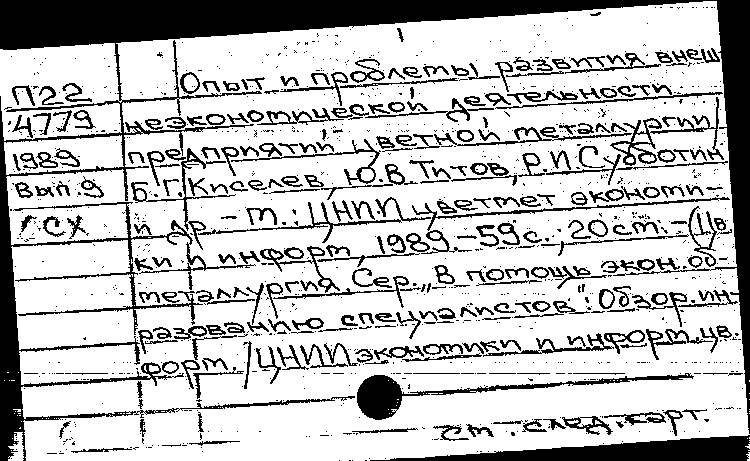 П22 Опыт и проблемы развития внеш-
4779 неэкономической деятельности
1989 предприятий цветной металлургии /
Вып.9 Б.Г.Киселев, Ю.В.Титов, Р.И.Субботин
СХ и др. – М.: ЦНИИ цветмет экономи-
ки и информ, 1989.–59с.; 20см.–(Цв.
металлургия. Сер. „В помощь экон. об-
разованию специалистов": Обзор. ин-
форм. / ЦНИИ экономики и информ. цв.
см. след. карт.